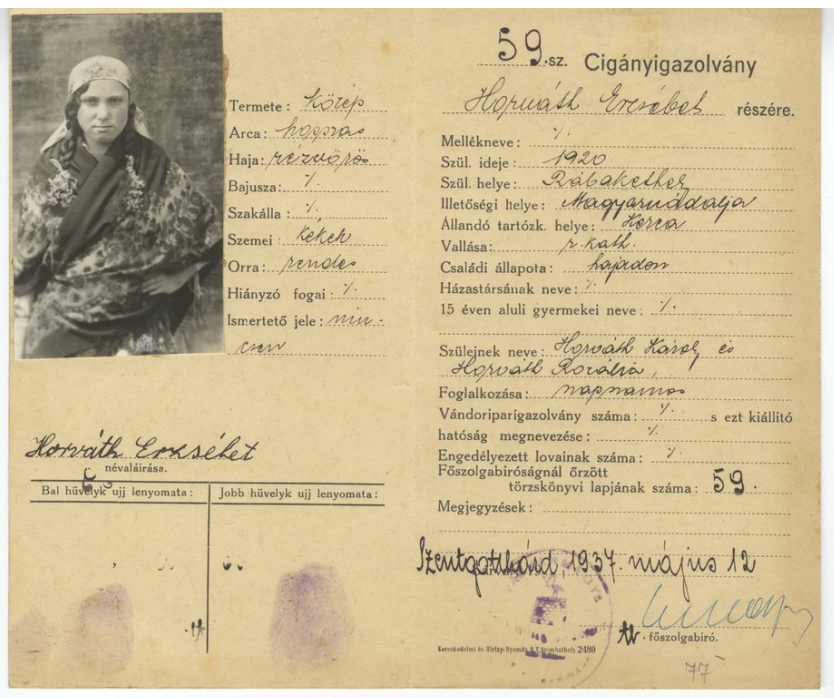 59.sz. Cigányigazolvány
Horváth Erzsébet részére.
Termete: közép
Arca: hosszas
Haja: rézvörös
Bajusza: ·/·
Szakálla: ·/·
Szemei: kékek
Orra: rendes
Hiányzó fogai: ·/·
Ismertető jele: nin-
csen
Horváth Erzsébet
névaláírása.
Bal hüvelyk ujj lenyomata:
Jobb hüvelyk ujj lenyomata:
Mellékneve: ·/·
Szül. ideje: 1920
Szül. helye: Rábakethely
Illetőségi helye: Magyarnádalja
Állandó tartózk. helye: Kerca
Vallása: r. kath.
Családi állapota: hajadon
Házastársának neve: ·/·
15 éven aluli gyermekei neve: ·/·
Szüleinek neve: Horváth Károly és
Horváth Rozália,
Foglalkozása: napszámos
Vándoriparigazolvány száma: ·/· s ezt kiállító
hatóság megnevezése: ·/·
Engedélyezett lovainak száma: ·/·
Főszolgabiróságnál őrzött
törzskönyvi lapjának száma: 59.
Megjegyzések:
Szentgotthárd, 1937. május 12
főszolgabiró.
Kereskedelmi és Hirlap-Nyomda R.T. Szombathely 2489
77